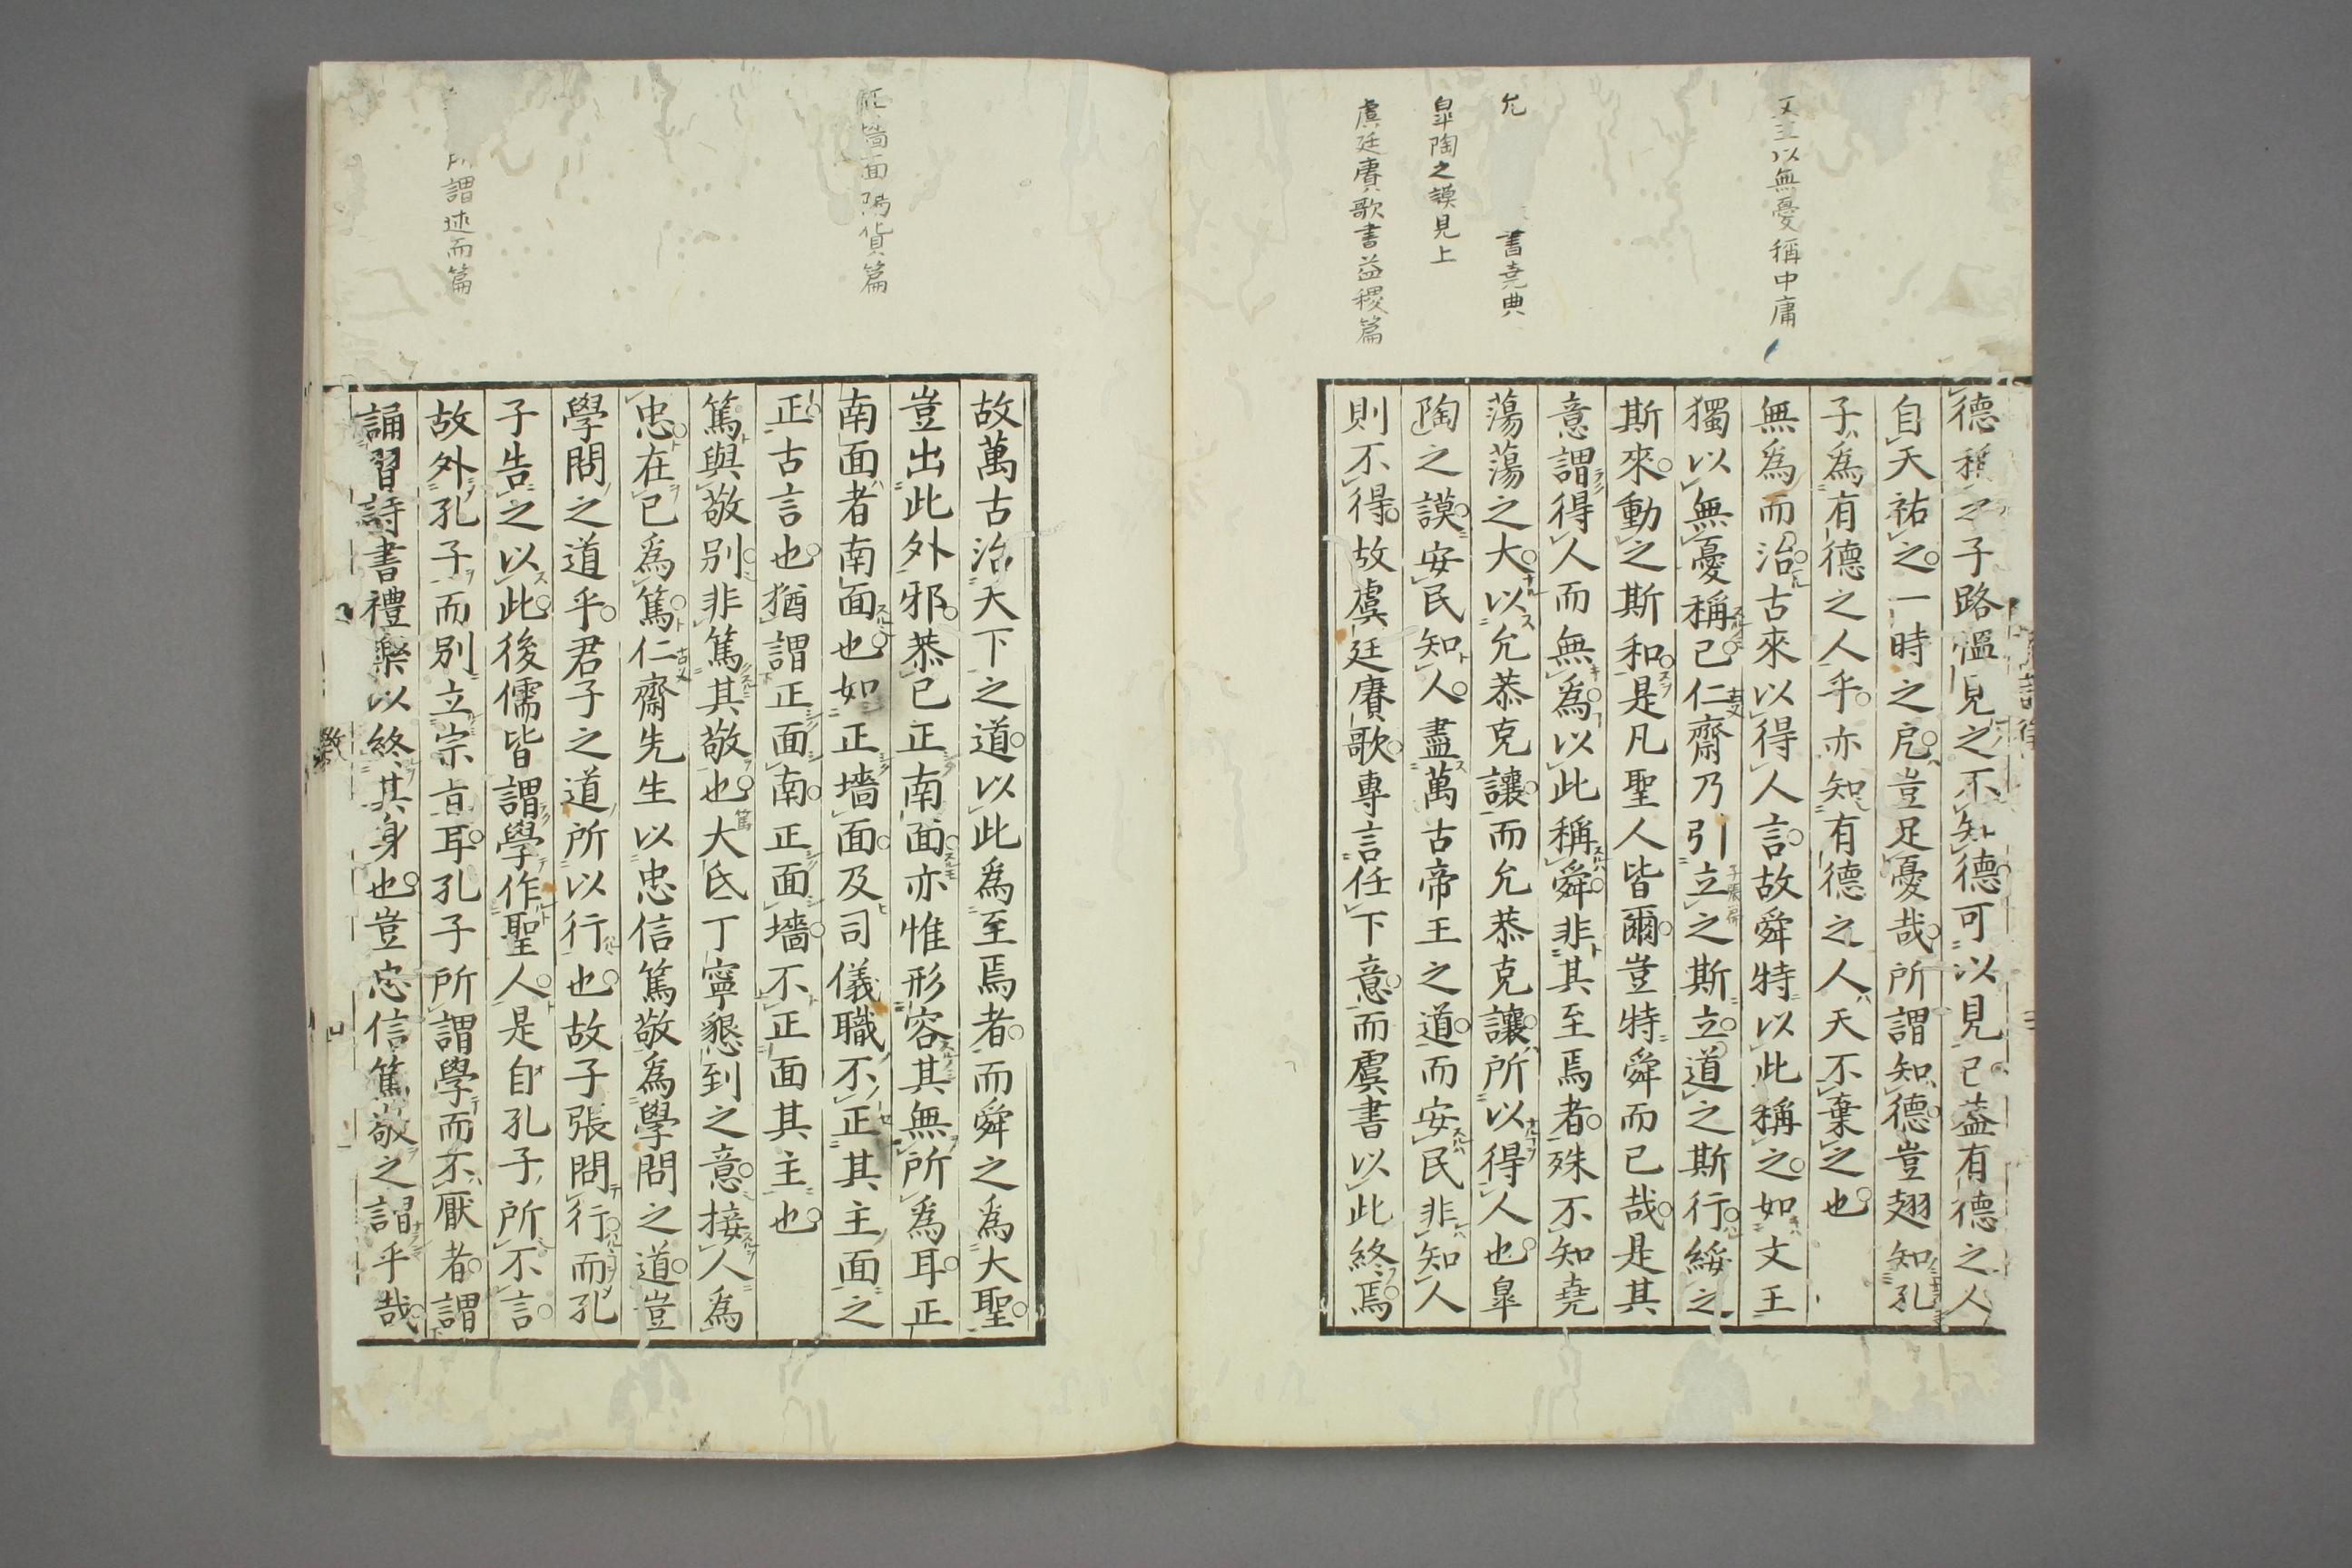 文王以無憂稱中庸
允
書堯典
皐陶之謨見上
虞廷賡歌書益稷篇
德稱之子路慍見之不知德可以見已蓋有德之人
自天祐之一時之戹豈足憂哉所謂知德豈翅知孔
子為有德之人乎亦知有德之人天不棄之也
無為而治古來以得人言故舜特以此稱之如文王
獨以無憂稱已仁齋乃引立之斯立道之斯行綏之
古義
子張篇
斯來動之斯和是凡聖人皆爾豈特舜而已哉是其
意謂得人而無為以此稱舜非其至焉者殊不知堯
蕩蕩之大以允恭克讓而允恭克讓所以得人也皐
陶之謨安民知人盡萬古帝王之道而安民非知人
則不得故虞廷賡歌專言任下意而虞書以此終焉
墻面陽貨篇
所謂述而篇
故萬古治天下之道以此為至焉者而舜之為大聖
豈出此外邪恭己正南面亦惟形容其無所為耳正
南面者南面也如正墻面及司儀職不正其主面之
正古言也猶謂正面南正面墻不正面其主也
篤與敬別非篤其敬也大氐丁寧懇到之意接人為
篤
忠在己為篤仁齋先生以忠信篤敬為學問之道豈
古義
學問之道乎君子之道所以行也故子張問行而孔
子告之以此後儒皆謂學作聖人是自孔子所不言
故外孔子而別立宗旨耳孔子所謂學而不厭者謂
誦習詩書禮樂以終其身也豈忠信篤敬之謂乎哉